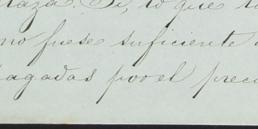 plaza. Si, lo que
no fuese suficiente
pagadas por el